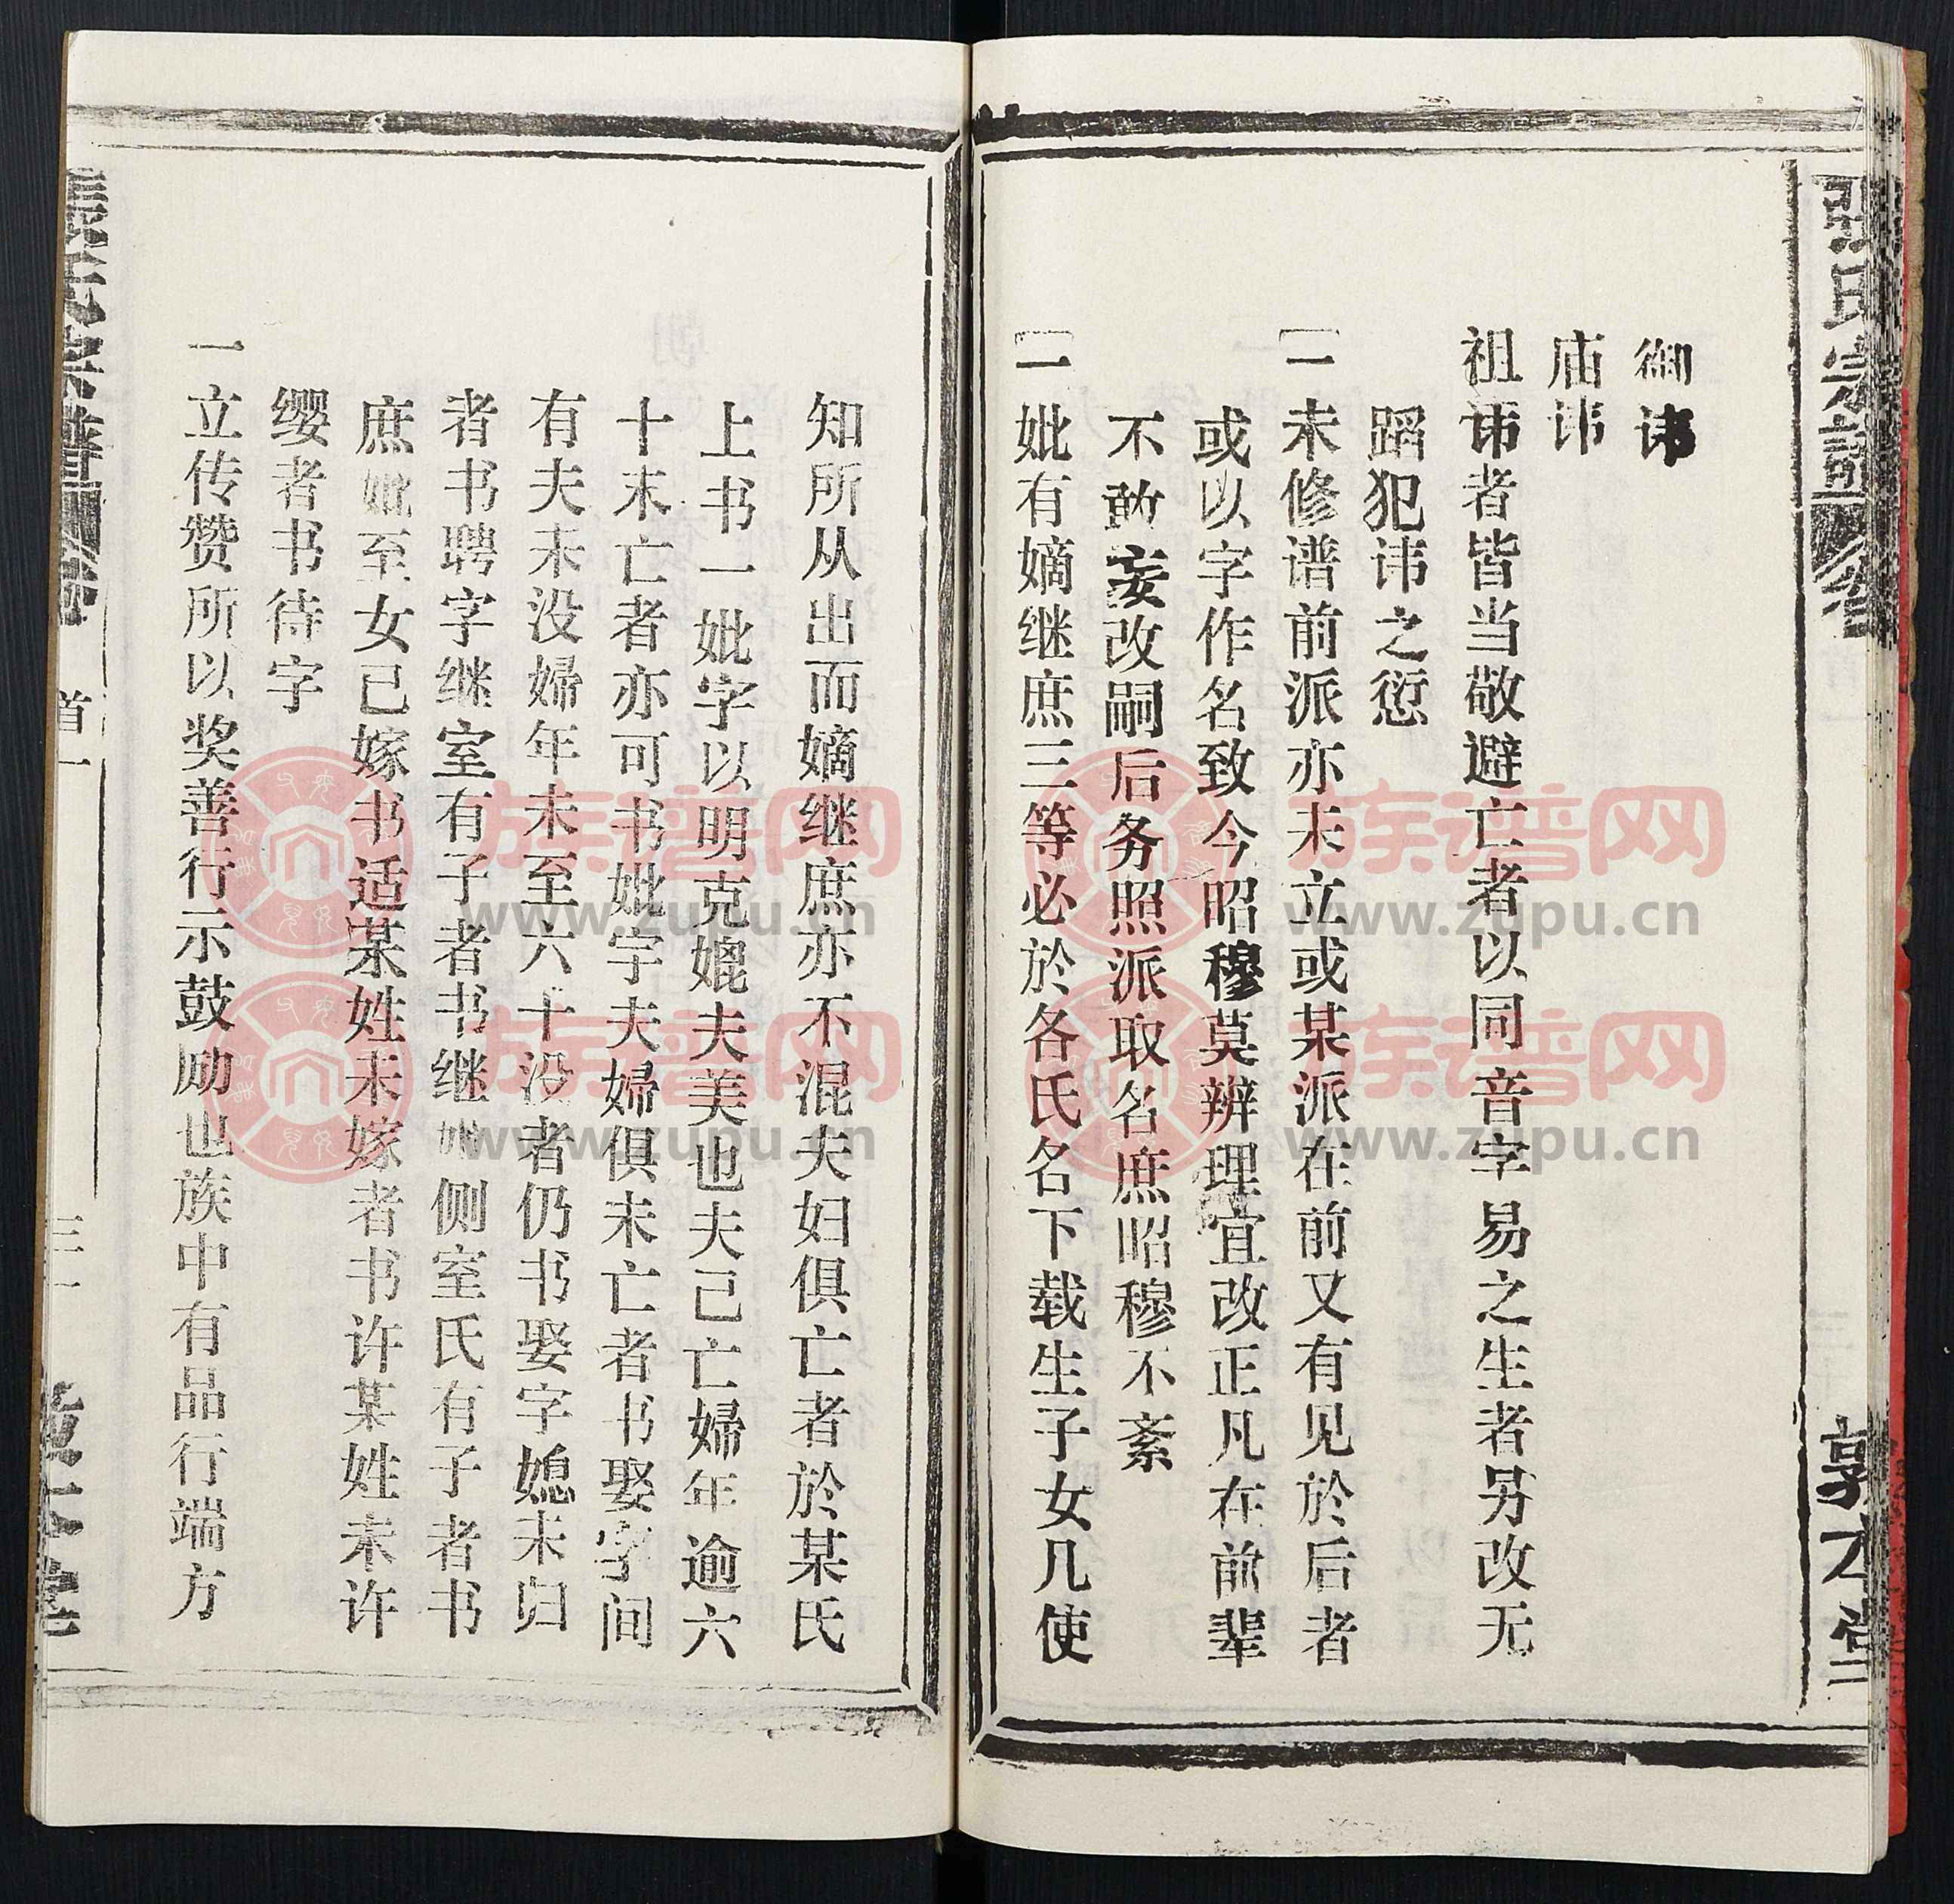 张氏宗譜 卷
敦本堂
御讳
庙讳
祖讳者皆当敬避亡者以同音字易之生者另改无
蹈犯讳之愆
一未修谱前派亦未立或某派在前又有见於后者
或以字作名致今昭穆莫辨理宜改正凡在前辈
不敢妄改嗣后务照派取名庶昭穆不紊
一妣有嫡继庶三等必於各氏名下载生子女几使
知所从出而嫡继庶亦不混夫妇俱亡者於某氏
上书一妣字以明克媲夫美也夫己亡婦年逾六
十末亡者亦可书妣字夫婦俱未亡者书娶字间
有夫未没婦年未至六十没者仍书娶字媳未归
者书聘字继室有子者书继妣侧室氏有子者书
庶妣至女己嫁书适某姓未嫁者书许某姓未许
缨者书待字
一立传赞所以奖善行示鼓励也族中有品行端方
張氏宗譜 卷
首一
三一
敦本堂
族谱网
www.zupu.cn
族谱网
www.zupu.cn
族谱网
www.zupu.cn
族谱网
www.zupu.cn